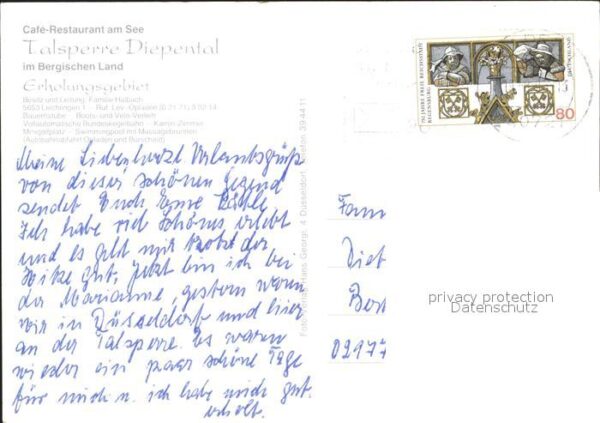 Café-Restaurant am See
Talsperre Diepental
im Bergischen Land
Erholungsgebiet
Besitz und Leitung: Familie Halbach
5653 Leichlingen 1 Ruf: Lev.-Opladen (0 21 71)
Bauernstube Boots- und Velo-Verleih
Vollautomatische Bundeskegelbahn Kamin-Zimmer
Minigolfplatz Swimmingpool mit Massagebrunnen
(Autobahnabfahrt Opladen und Burscheid)
Meine Lieben, herzl. Urlaubsgrüße
von dieser schönen Gegend
sendet Euch Eure
Ich habe viel Schönes erlebt
und es geht mir trotz der
Hitze gut, jetzt bin ich bei
der Marianne, gestern waren
wir in Düsseldorf und hier
an der Talsperre. Es waren
wieder ein paar schöne Tage
für mich u. ich habe mich gut
erholt.
Hans Georgi, 4 Düsseldorf, Telefon 39 44 11
750 JAHRE FREIE REICHSSTADT
REGENSBURG
DEUTSCHLAND
80
Fam
Diet
02977
privacy protection
Datenschutz